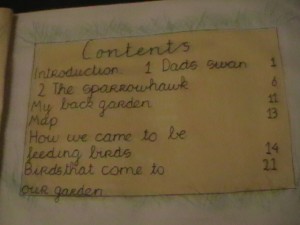 Contents
Introduction 1 Dads swan 1
2 The sparrowhawk 6
My back garden 11
Map 13
How we came to be
feeding birds 14
Birds that come to 21
our garden